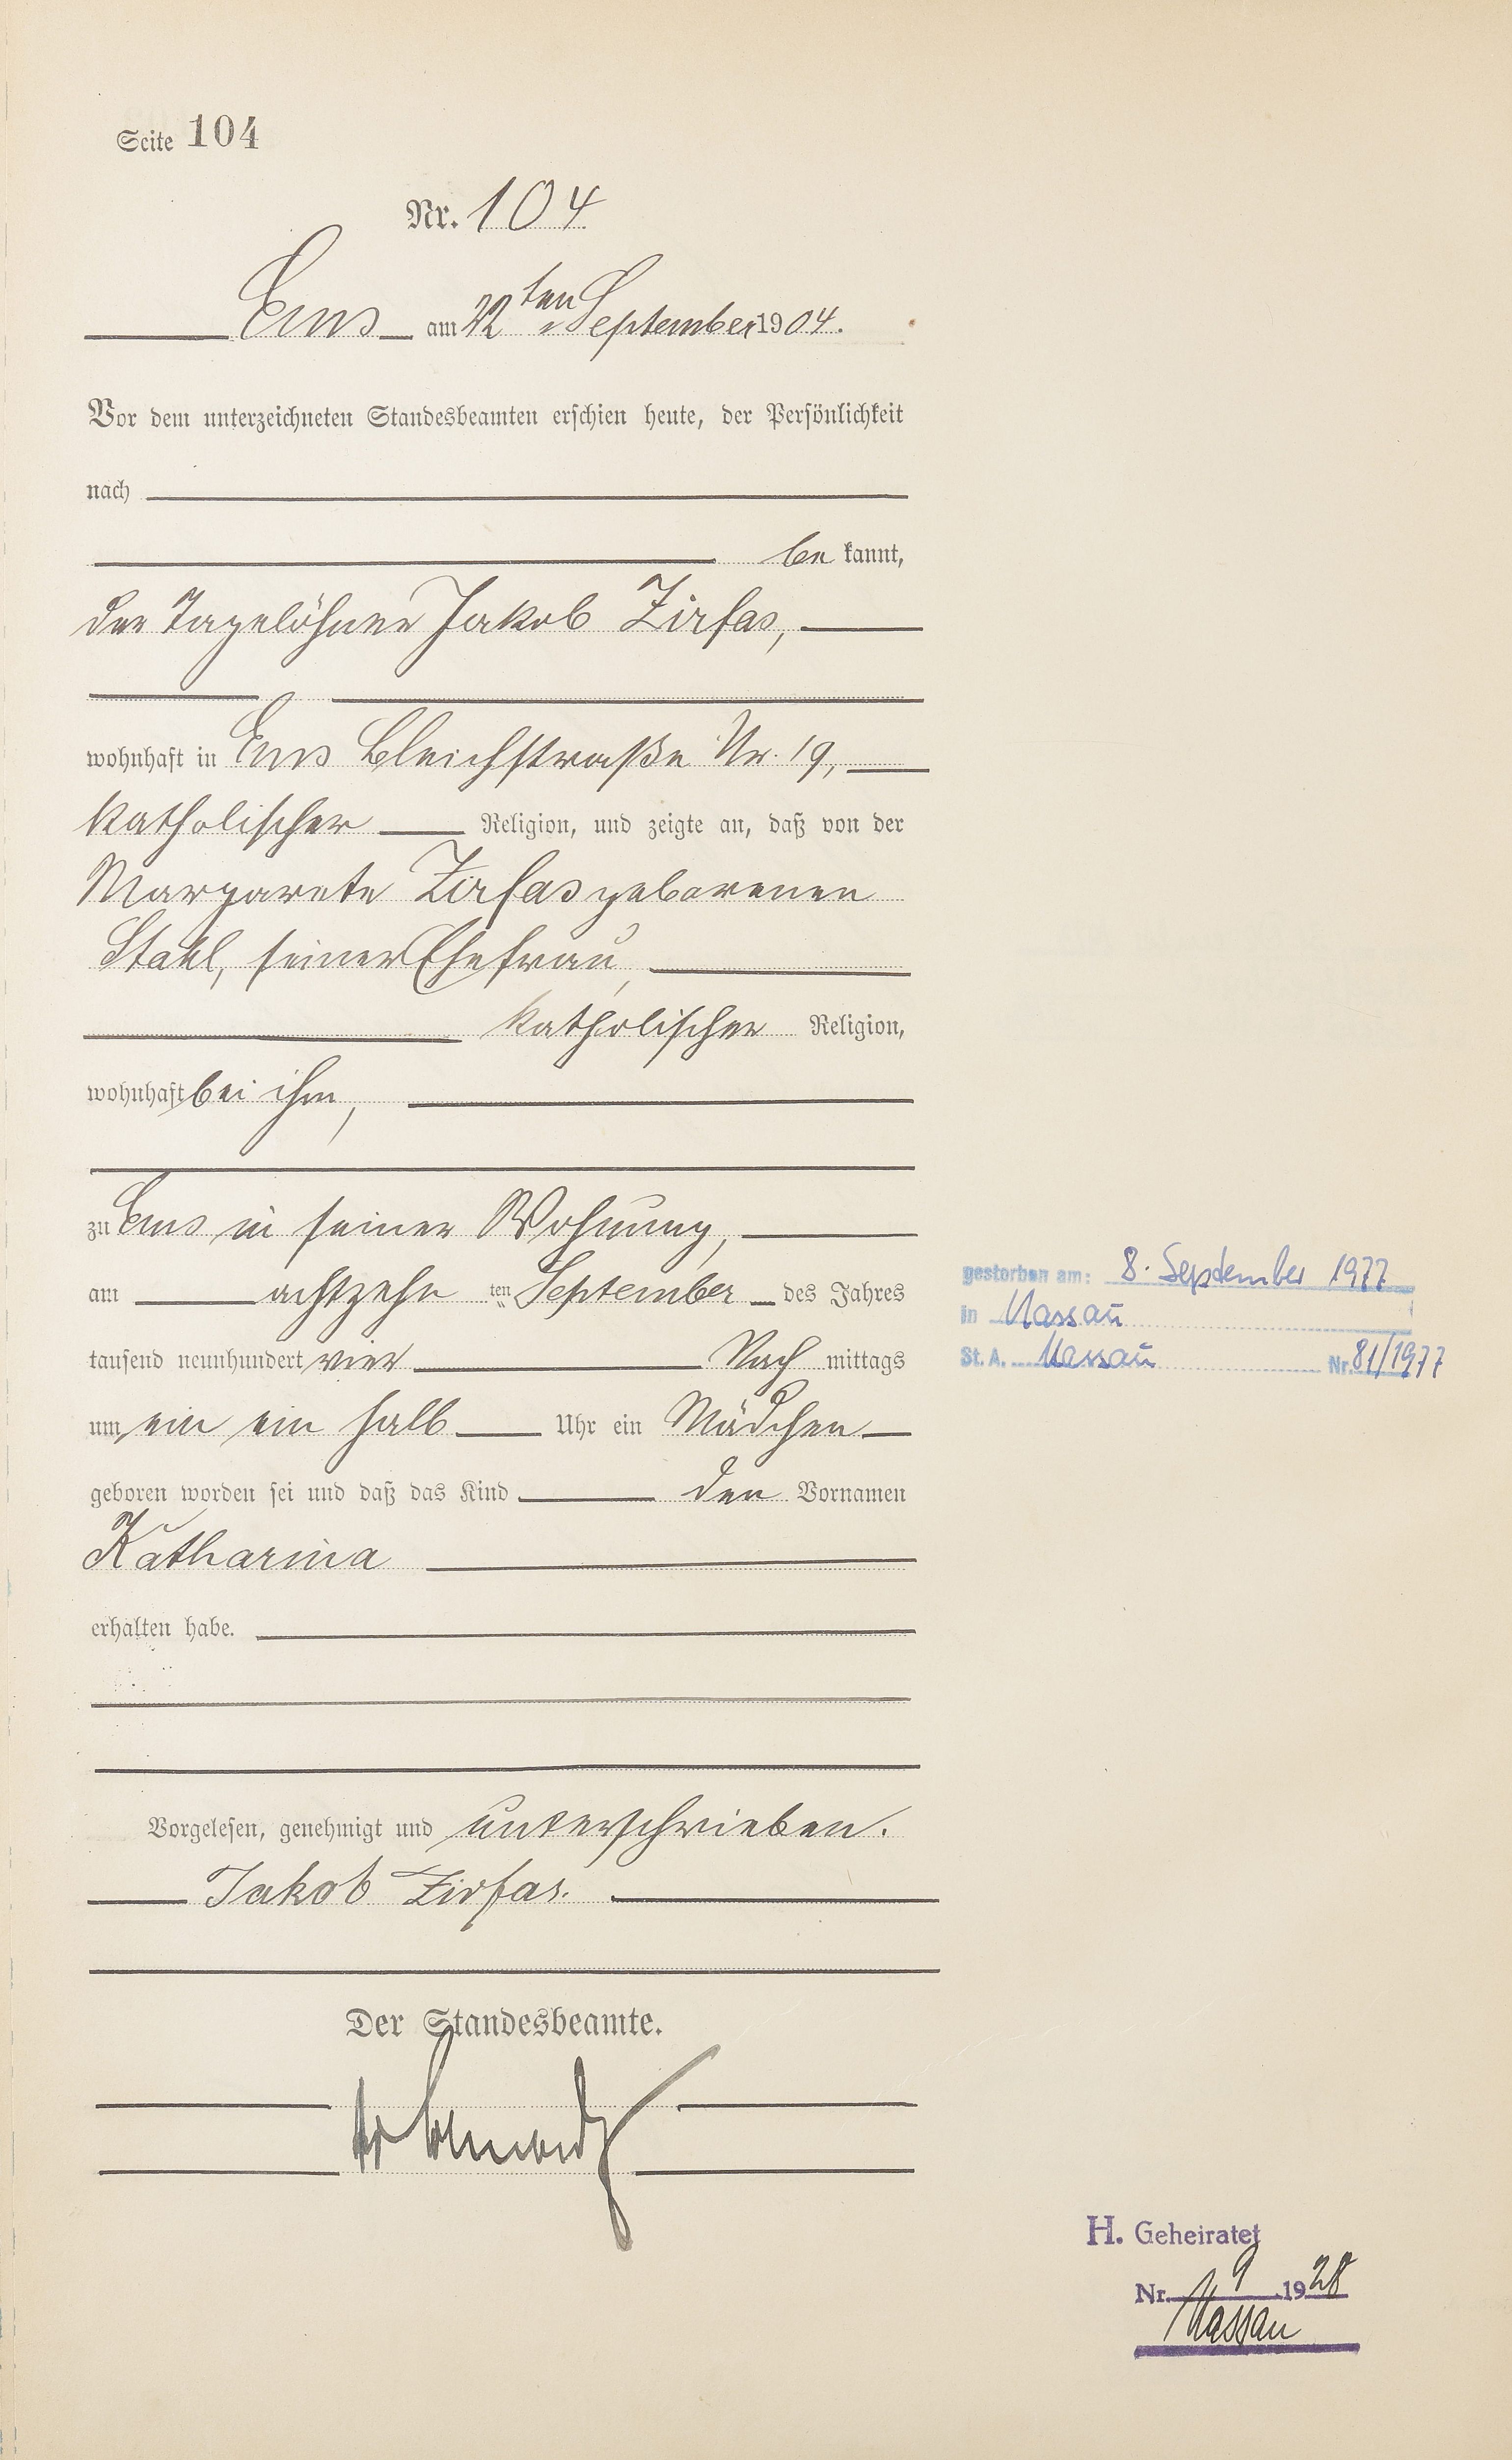 Seite 104
Nr. 104
Ems am 22ten September 1904.
Vor dem unterzeichneten Standesbeamten erschien heute, der Persönlichkeit
nach
be kannt,
der Tagelöhner Jakob Zirfas,
wohnhaft in Ems Bleichstraße Nr. 19,
katholischer Religion, und zeigte an, daß von der
Margarete Zirfas geborenen
Stahl, seiner Ehefrau,
katholischer Religion,
wohnhaft bei ihm,
zu Ems in seiner Wohnung,
am achtzehn ten September des Jahres
tausend neunhundert vier Nach mittags
um ein ein halb Uhr ein Mädchen
geboren worden sei und daß das Kind den Vornamen
Katharina
erhalten habe.
Vorgelesen, genehmigt und unterschrieben.
Jakob Zirfas.
Der Standesbeamte.
gestorben am: 8. September 1977
in Nassau
St. A. Nassau Nr. 81/1977
H. Geheiratet
Nr. 9 1928
Nassau